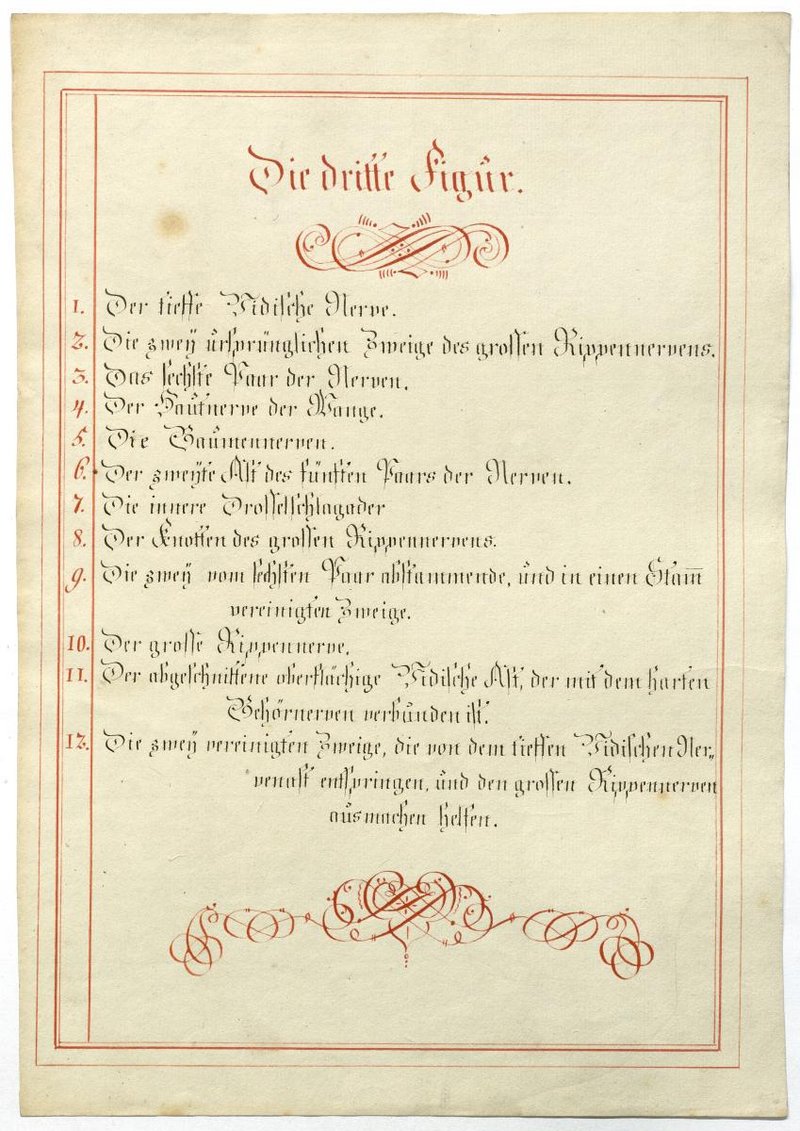 Die dritte Figur.
1. Der tieffe Vidische Nerve.
2. Die zweÿ ursprünglichen Zweige des grossen Rippennervens.
3. Das sechste Paar der Nerven.
4. Der Hautnerve der Wange.
5. Die Gaumennerven.
6. Der zweÿte Ast des fünften Paars der Nerven.
7. Die innere Drosselschlagader
8. Der Knotten des grossen Rippennervens.
9. Die zweÿ vom sechsten Paar abstammende, und in einen Stam̅
vereinigten Zweige.
10. Der grosse Rippennerve.
11. Der abgeschnittene oberflächige Vidische Ast, der mit dem harten
Gehörnerven verbunden ist.
12. Die zweÿ vereinigten Zweige, die von dem tieffen Vidischen Ner„
venast entspringen, und den grossen Rippennerven
ausmachen helfen.